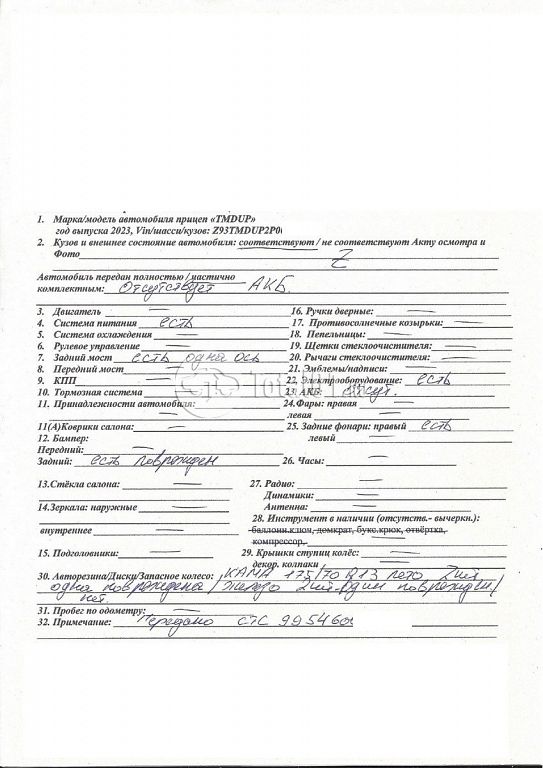 1. Марка/модель автомобиля прицеп «TMDUP»
год выпуска 2023, Vin/шасси/кузов: Z93TMDUP2P0
2. Кузов и внешнее состояние автомобиля: соответствуют / не соответствуют Акту осмотра и
Фото Z
Автомобиль передан полностью / частично
комплектным: Отсутствует АКБ.
3. Двигатель —
16. Ручки дверные: —
4. Система питания есть
17. Противосолнечные козырьки: —
5. Система охлаждения —
18. Пепельницы: —
6. Рулевое управление —
19. Щетки стеклоочистителя: —
7. Задний мост есть одна ось
20. Рычаги стеклоочистителя: —
8. Передний мост —
21. Эмблемы/надписи: —
9. КПП —
22. Электрооборудование: есть
10. Тормозная система —
23 АКБ: отсут.
11. Принадлежности автомобиля: —
24.Фары: правая —
левая —
11(А)Коврики салона: —
25. Задние фонари: правый есть
12. Бампер:
левый —
Передний: —
Задний: есть поврежден
26. Часы: —
13.Стёкла салона: —
27. Радио: —
Динамики: —
14.Зеркала: наружные —
Антенна: —
28. Инструмент в наличии (отсутств.- вычеркн.):
внутреннее —
баллонн.ключ, домкрат, букс.крюк, отвёртка,
компрессор,
15. Подголовники: —
29. Крышки ступиц колёс: —
декор. колпаки —
30. Авторезина/Диски/Запасное колесо: КАМА 175/70 R13 лето 2шт
одна повреждена / железо 2шт один поврежден /
нет.
31. Пробег по одометру: —
32. Примечание: Передано СТС 995460